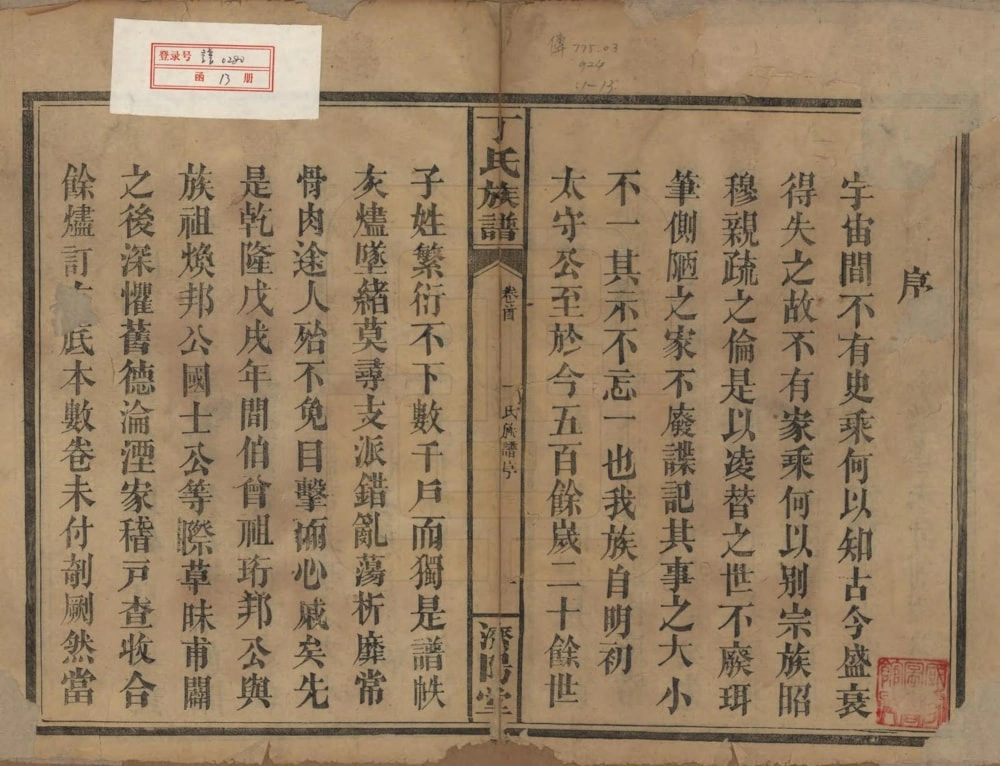 登录号 譜 0280
函 13 册
傳 775.03
924
:1-13
序
宇宙間不有史乘何以知古今盛衰
得失之故不有家乘何以别宗族昭
穆親疏之倫是以凌替之世不廢珥
筆側陋之家不廢諜記其事之大小
不一其示不忘一也我族自明初
太守公至於今五百餘嵗二十餘世
丁氏族譜
卷首
氏族譜序
一
濟陽堂
子姓繁衍不下數千戸而獨是譜帙
灰燼墜緒莫尋支派錯亂蕩析靡常
骨肉途人殆不免目擊痌心戚矣先
是乾隆戊戌年間伯曾祖珩邦公與
族祖煥邦公國士公等際草昧甫闢
之後深懼舊德淪湮家稽戸查收合
餘燼訂 底本數卷未付剞劂然當